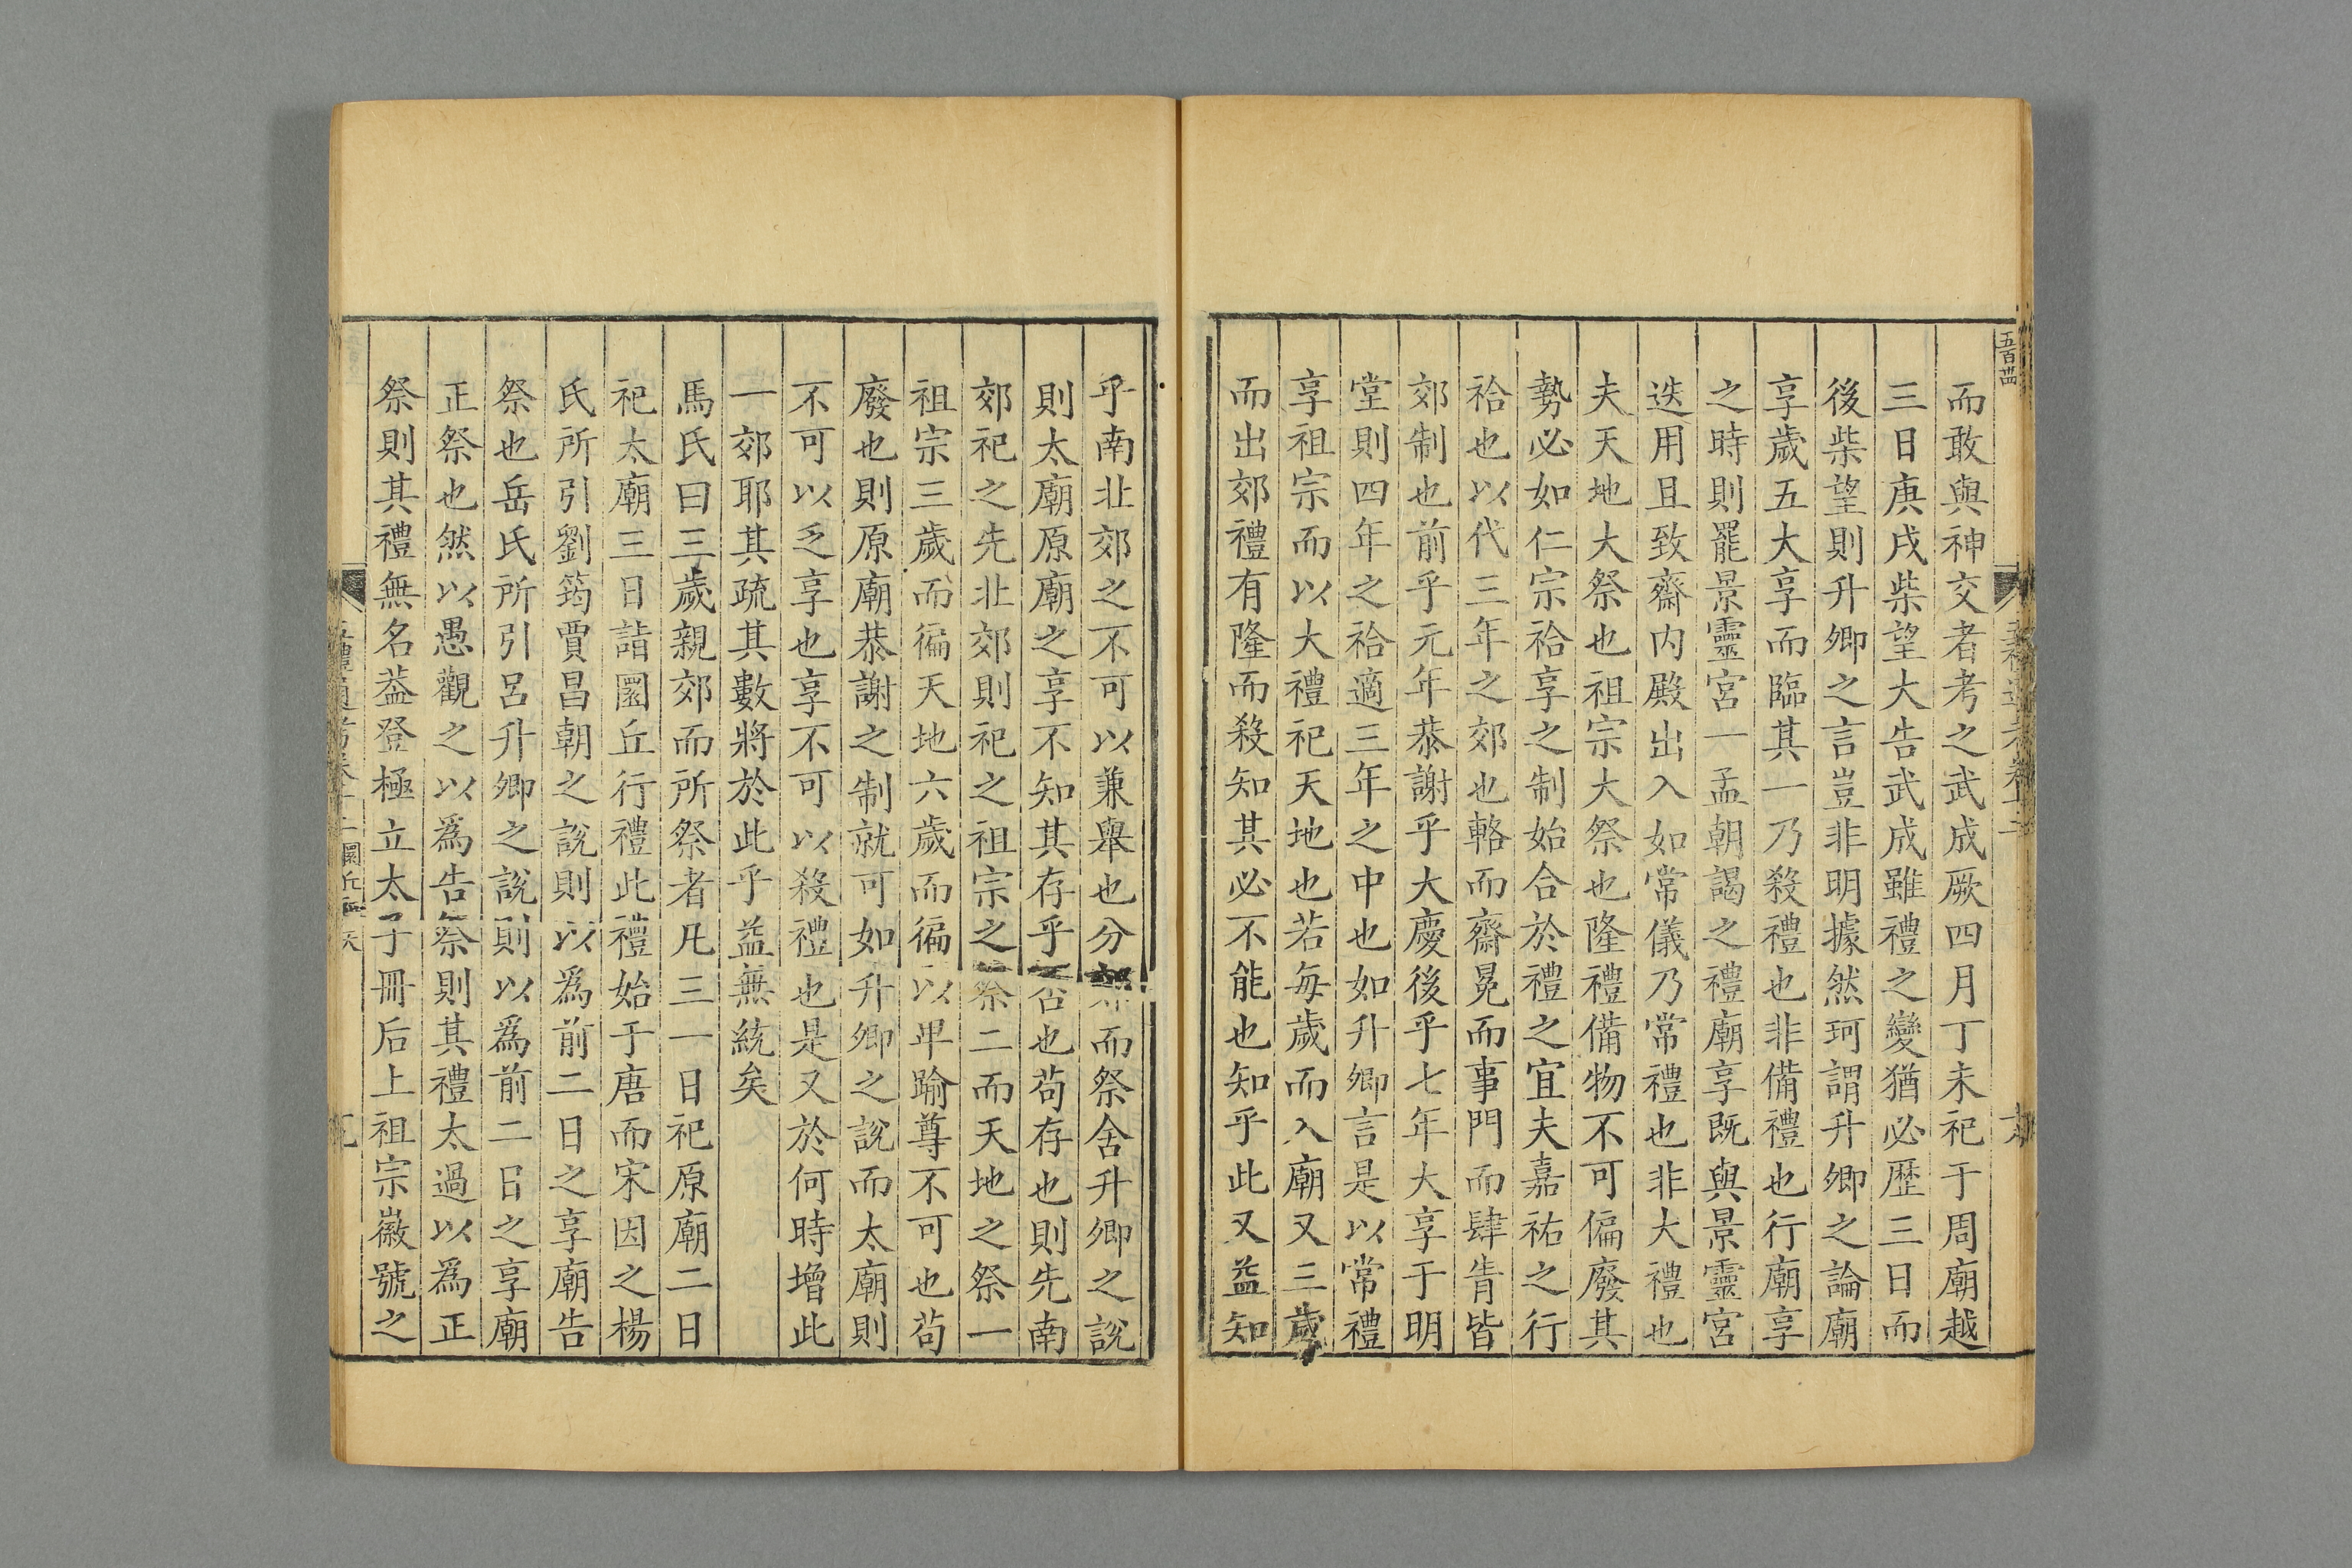 而敢與神交者考之武成厥四月丁未祀于周廟越
三日庚戌柴望大告武成雖禮之變猶必歷三日而
後柴望則升卿之言豈非明據然珂謂升卿之論廟
享歲五大享而臨其一乃殺禮也非備禮也行廟享
之時則罷景靈宮一孟朝謁之禮廟享既與景靈宮
迭用且致齋內殿出入如常儀乃常禮也非大禮也
夫天地大祭也祖宗大祭也隆禮備物不可偏廢其
勢必如仁宗祫享之制始合於禮之宜夫嘉祐之行
祫也以代三年之郊也輅而齋冕而事門而肆眚皆
郊制也前乎元年恭謝乎大慶後乎七年大享于明
堂則四年之祫適三年之中也如升卿言是以常禮
享祖宗而以大禮祀天地也若每歲而入廟又三歲
而出郊禮有隆而殺知其必不能也知乎此又益知
乎南北郊之不可以兼舉也分郊而祭舍升卿之說
則太廟原廟之享不知其存乎否也苟存也則先南
郊祀之先北郊則祀之祖宗之祭二而天地之祭一
祖宗三歲而徧天地六歲而徧以卑踰尊不可也苟
廢也則原廟恭謝之制就可如升卿之說而太廟則
不可以乏享也享不可以殺禮也是又於何時增此
一郊耶其疏其數將於此乎益無統矣
馬氏曰三歲親郊而所祭者凡三一日祀原廟二日
祀太廟三日詣圜丘行禮此禮始于唐而宋因之楊
氏所引劉筠賈昌朝之說則以為前二日之享廟告
祭也岳氏所引呂升卿之說則以為前二日之享廟
正祭也然以愚觀之以為告祭則其禮太過以為正
祭則其禮無名蓋登極立太子冊后上祖宗徽號之